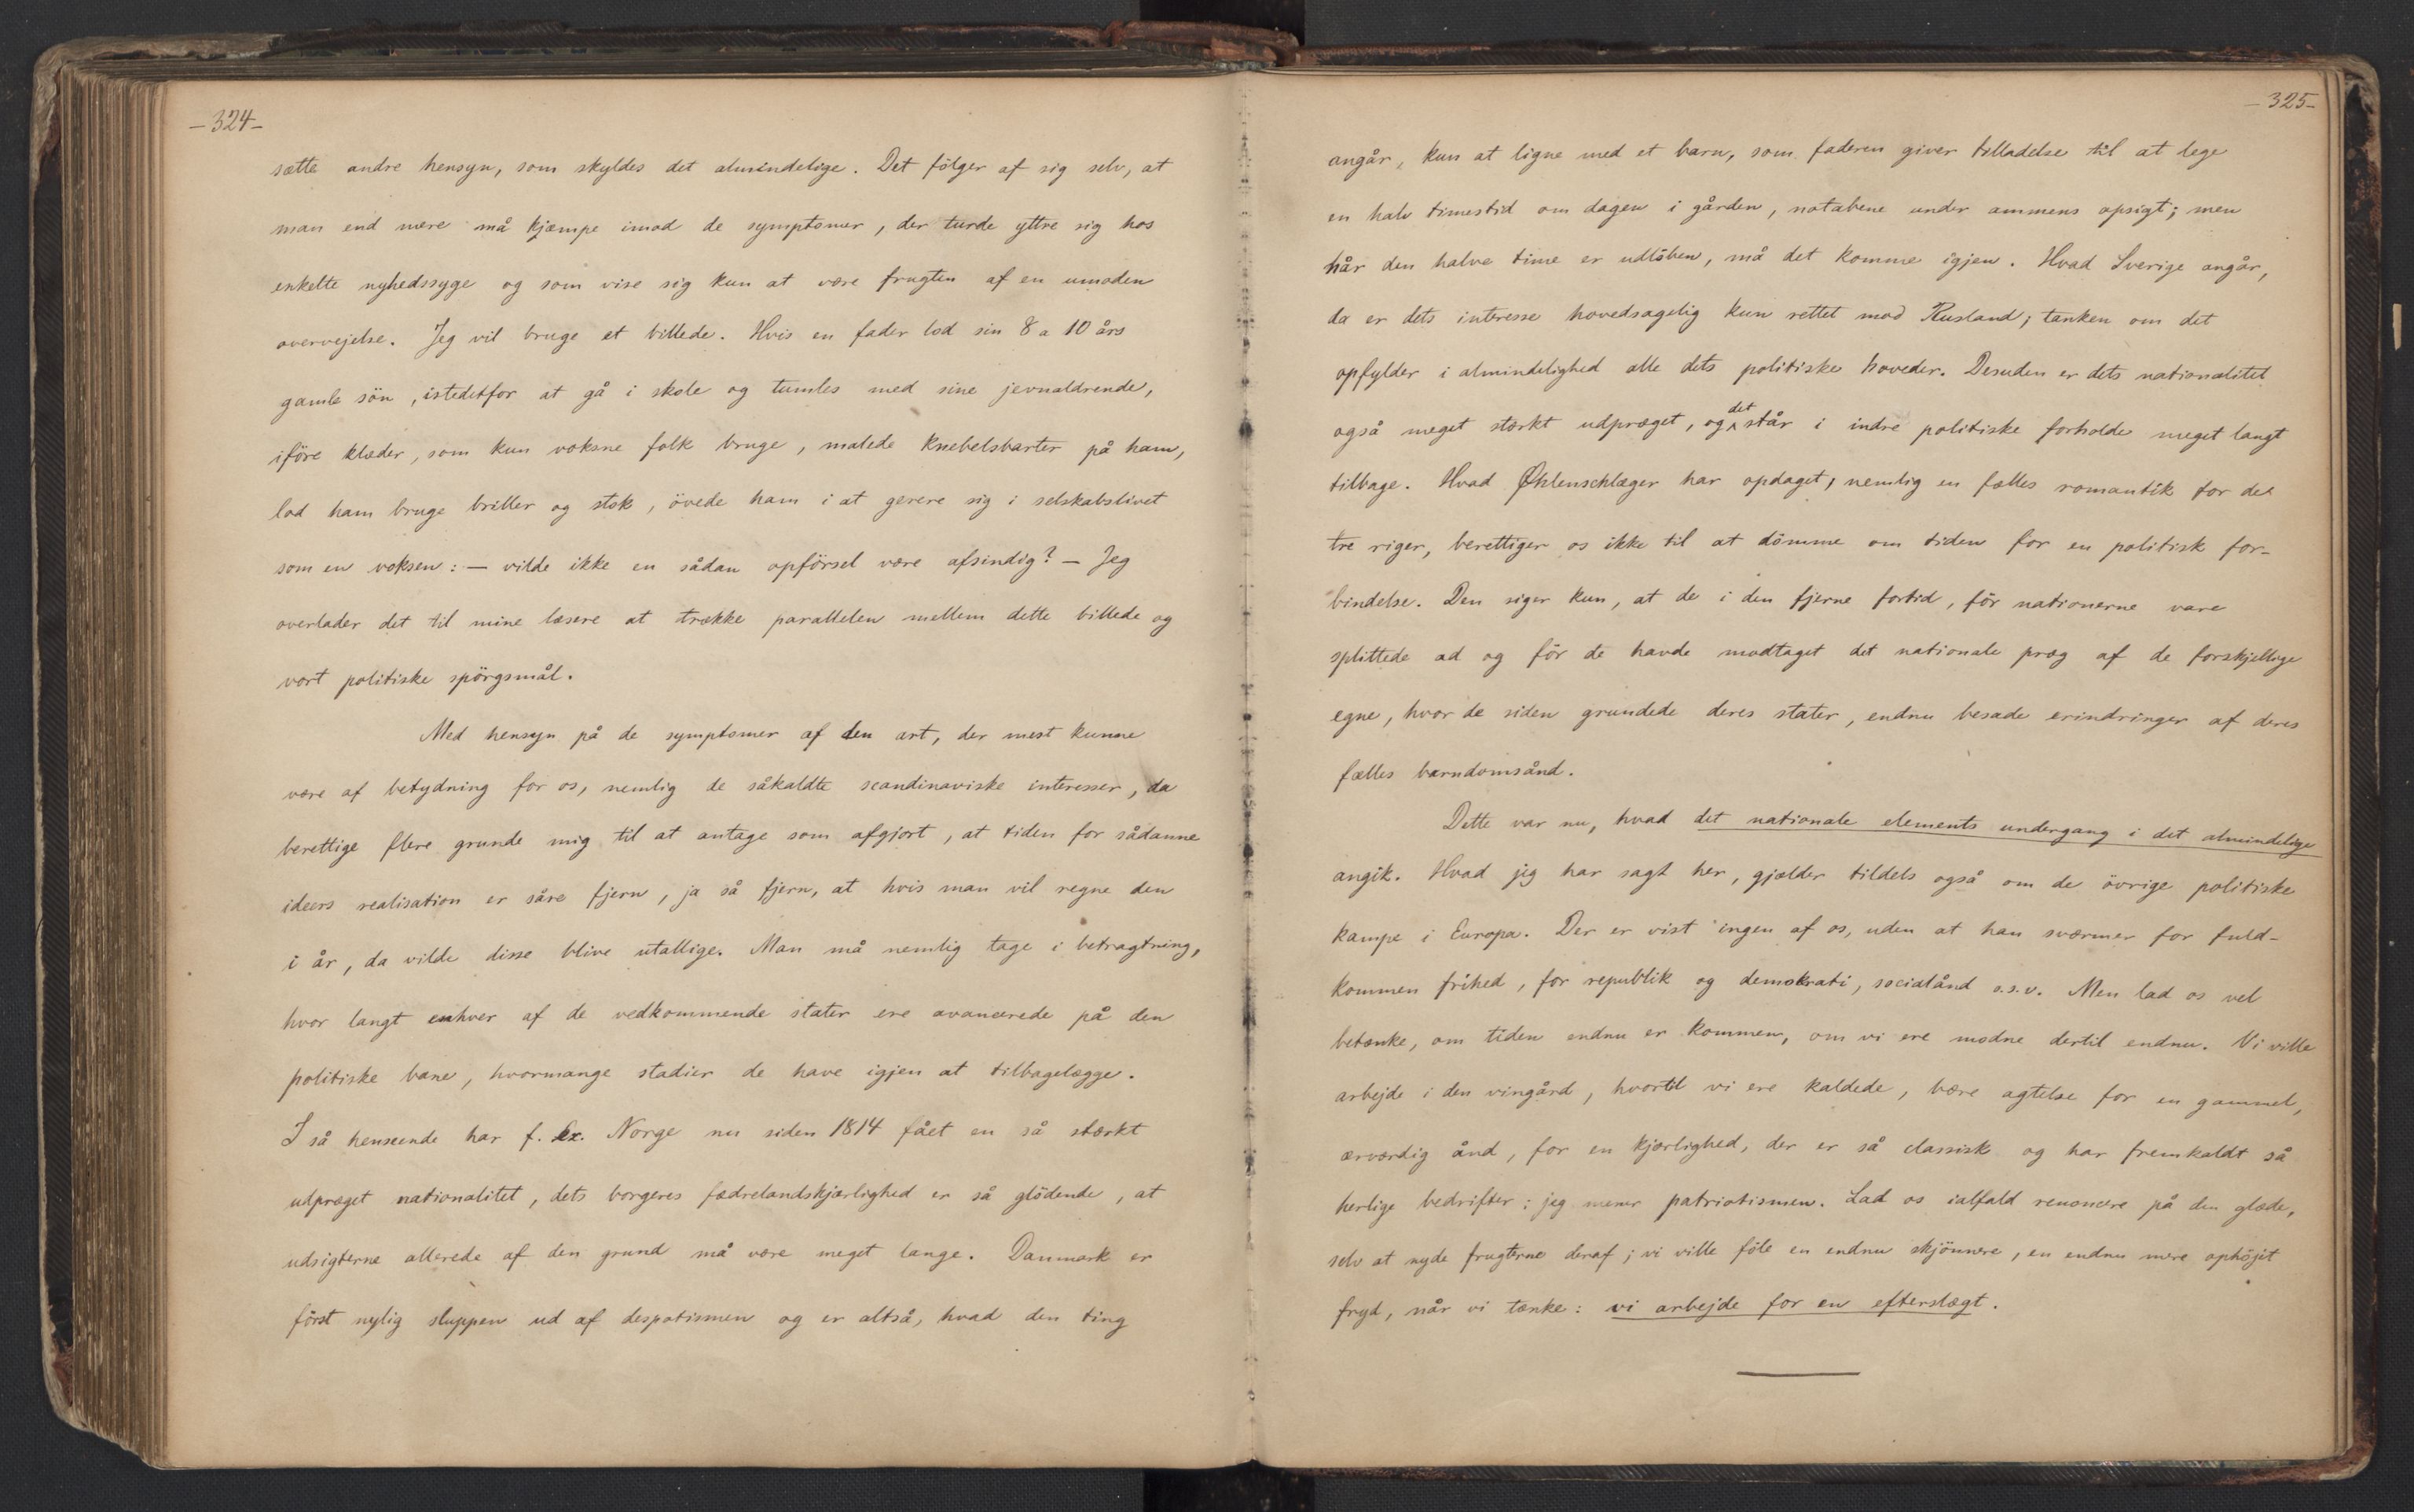 —324—
sætte andre hensyn, som skyldes det almindelige. Det fölger af sig selv, at
man end mere må kjæmpe imod de symptomer, der turde yttre sig hos
enkelte nyhedssyge og som vise sig kun at være frugten af en umoden
overvejelse. Jeg vil bruge et billede. Hvis en fader lod sin 8 a 10 års
gamle sön, istedetfor at gå i skole og tumles med sine jevnaldrende,
iföre klæder, som kun voksne folk bruge, malede knebelsbarter på ham,
lod ham bruge briller og stok, övede ham i at gerere sig i selskabslivet
som en voksen: — vilde ikke en sådan opförsel være afsindig? — Jeg
overlader det til mine læsere at trække parallelen mellem dette billede og
vort politiske spörgsmål.
Med hensyn på de symptomer af den art, der mest kunne
være af betydning for os, nemlig de såkaldte scandinaviske interesser, da
berettige flere grunde mig til at antage som afgjort, at tiden for sådanne
ideers realisation er såre fjern, ja så fjern, at hvis man vil regne den
i år, da vilde disse blive utallige. Man må nemlig tage i betragtning,
hvor langt enhver af de vedkommende stater ere avancerede på den
politiske bane, hvormange stadier de have igjen at tilbagelægge.
I så henseende har f. Ex. Norge nu siden 1814 fået en så stærkt
udpræget nationalitet, dets borgeres fædrelandskjærlighed er så glödende, at
udsigterne allerede af den grund må være meget lange. Danmark er
först nylig sluppen ud af despotismen og er altså, hvad den ting
—325—
angår, kun at ligne med et barn, som faderen giver tilladelse til at lege
en halv timestid om dagen i gården, notabene under ammens opsigt; men
når den halve time er udlöben, må det komme igjen. Hvad Sverige angår,
da er dets interesse hovedsagelig kun rettet mod Rusland; tanken om det
opfylder i almindelighed alle dets politiske hoveder. Desuden er dets nationalitet
også meget stærkt udpræget, og det står i indre politiske forholde meget langt
tilbage. Hvad Øhlenschlæger har opdaget, nemlig en fælles romantik for de
tre riger, berettiger os ikke til at dömme om tiden for en politisk for-
bindelse. Den siger kun, at de i den fjerne fortid, för nationerne vare
splittede ad og för de havde modtaget det nationale præg af de forskjellige
egne, hvor de siden grundede deres stater, endnu besade erindringer af deres
fælles barndomsånd.
Dette var nu, hvad det nationale elements undergang i det almindelige
angik. Hvad jeg har sagt her, gjælder tildels også om de övrige politiske
kampe i Europa. Der er vist ingen af os, uden at han sværmer for fuld-
kommen frihed, for republik og demokrati, socialånd o.s.v. Men lad os vel
betænke, om tiden endnu er kommen, om vi ere modne dertil endnu. Vi ville
arbejde i den vingård, hvortil vi ere kaldede, bære agtelse for en gammel,
ærværdig ånd, for en kjærlighed, der er så classisk og har fremkaldt så
herlige bedrifter: jeg mener patriotismen. Lad os ialfald renoncere på den glæde,
selv at nyde frugterne deraf; vi ville föle en endnu skjönnere, en endnu mere ophöjet
fryd, når vi tænke: vi arbejde for en efterslægt.